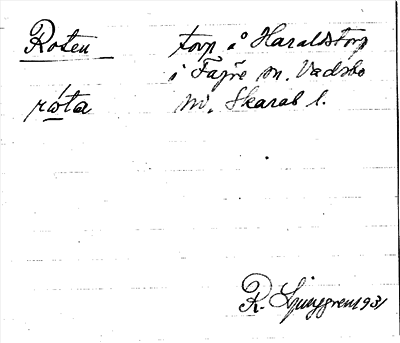 Roten torp å Haraldstorp
i Fägre sn. Vadsbo
ròta hd. Skarab l.
R. Ljunggren 1931